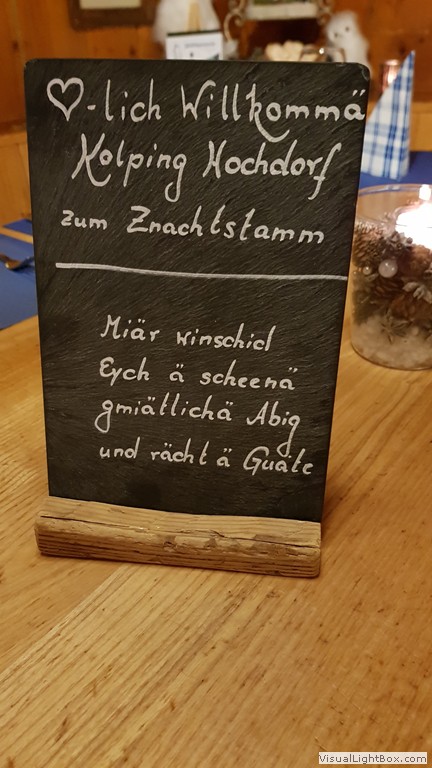 ♡-lich Willkommä
Kolping Hochdorf
zum Znachtstamm
Miär winschid
Eych ä scheenä
gmiätlichä Abig
und rächt ä Guate
VisualLightBox.com